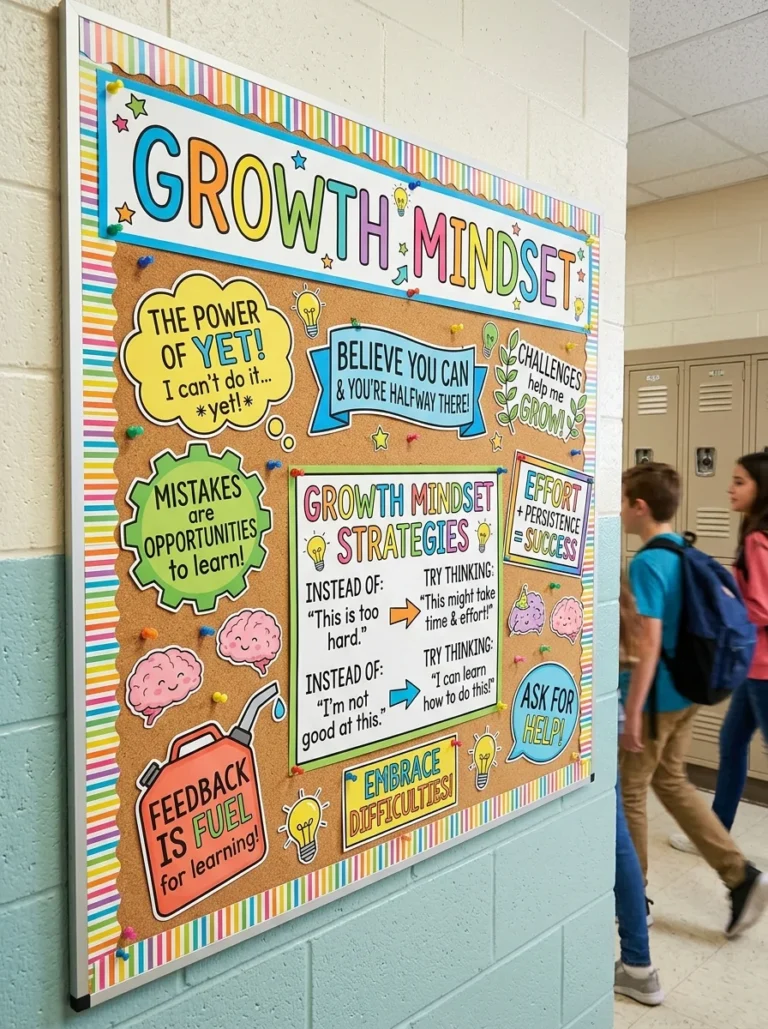 GROWTH MINDSET
THE POWER
OF YET!
I can't do it...
*yet!*
BELIEVE YOU CAN
& YOU'RE HALFWAY THERE!
CHALLENGES
help me
GROW!
MISTAKES
are
OPPORTUNITIES
to learn!
GROWTH MINDSET
STRATEGIES
INSTEAD OF:
"This is too
hard."
TRY THINKING:
"This might take
time & effort!"
INSTEAD OF:
"I'm not
good at this."
TRY THINKING:
"I can learn
how to do this!"
EFFORT
+ PERSISTENCE
= SUCCESS
FEEDBACK
IS FUEL
for learning!
EMBRACE
DIFFICULTIES!
ASK FOR
HELP!